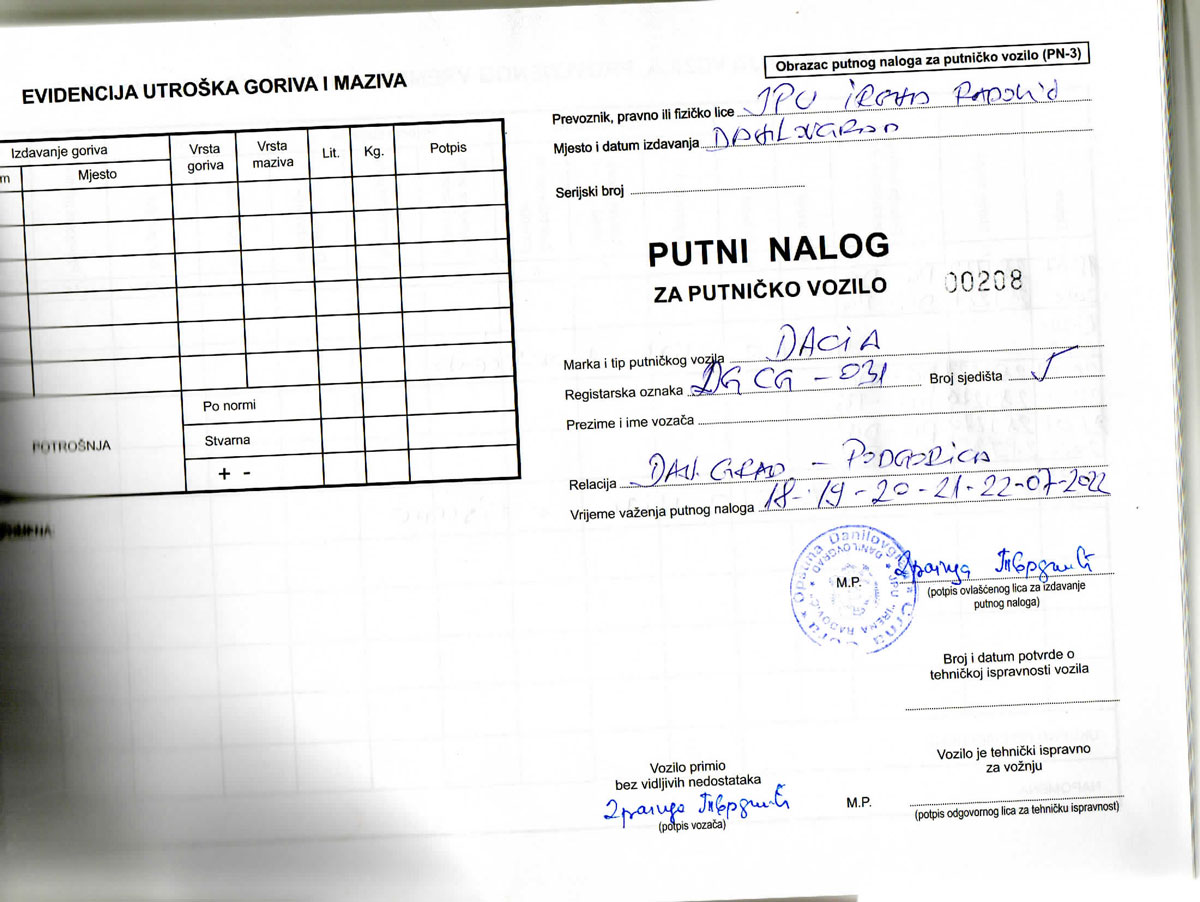 EVIDENCIJA UTROŠKA GORIVA I MAZIVA
Izdavanje goriva
Mjesto
Vrsta goriva
Vrsta maziva
Lit.
Kg.
Potpis
Po normi
POTROŠNJA
Stvarna
+ -
Obrazac putnog naloga za putničko vozilo (PN-3)
Prevoznik, pravno ili fizičko lice JPU
Mjesto i datum izdavanja DANILOVGRAD
Serijski broj
PUTNI NALOG
ZA PUTNIČKO VOZILO 00208
Marka i tip putničkog vozila DACIA
Registarska oznaka DG CG - 031 Broj sjedišta
Prezime i ime vozača
Relacija DAN. GRAD - PODGORICA
Vrijeme važenja putnog naloga 18-19-20-21-22-07-2022
Opština Danilovgrad Crna Gora
JPU "IRENA RADOVIĆ" DANILOVGRAD
M.P.
(potpis ovlašćenog lica za izdavanje
putnog naloga)
Broj i datum potvrde o
tehničkoj ispravnosti vozila
Vozilo primio
bez vidljivih nedostataka
(potpis vozača)
M.P.
Vozilo je tehnički ispravno
za vožnju
(potpis odgovornog lica za tehničku ispravnost)